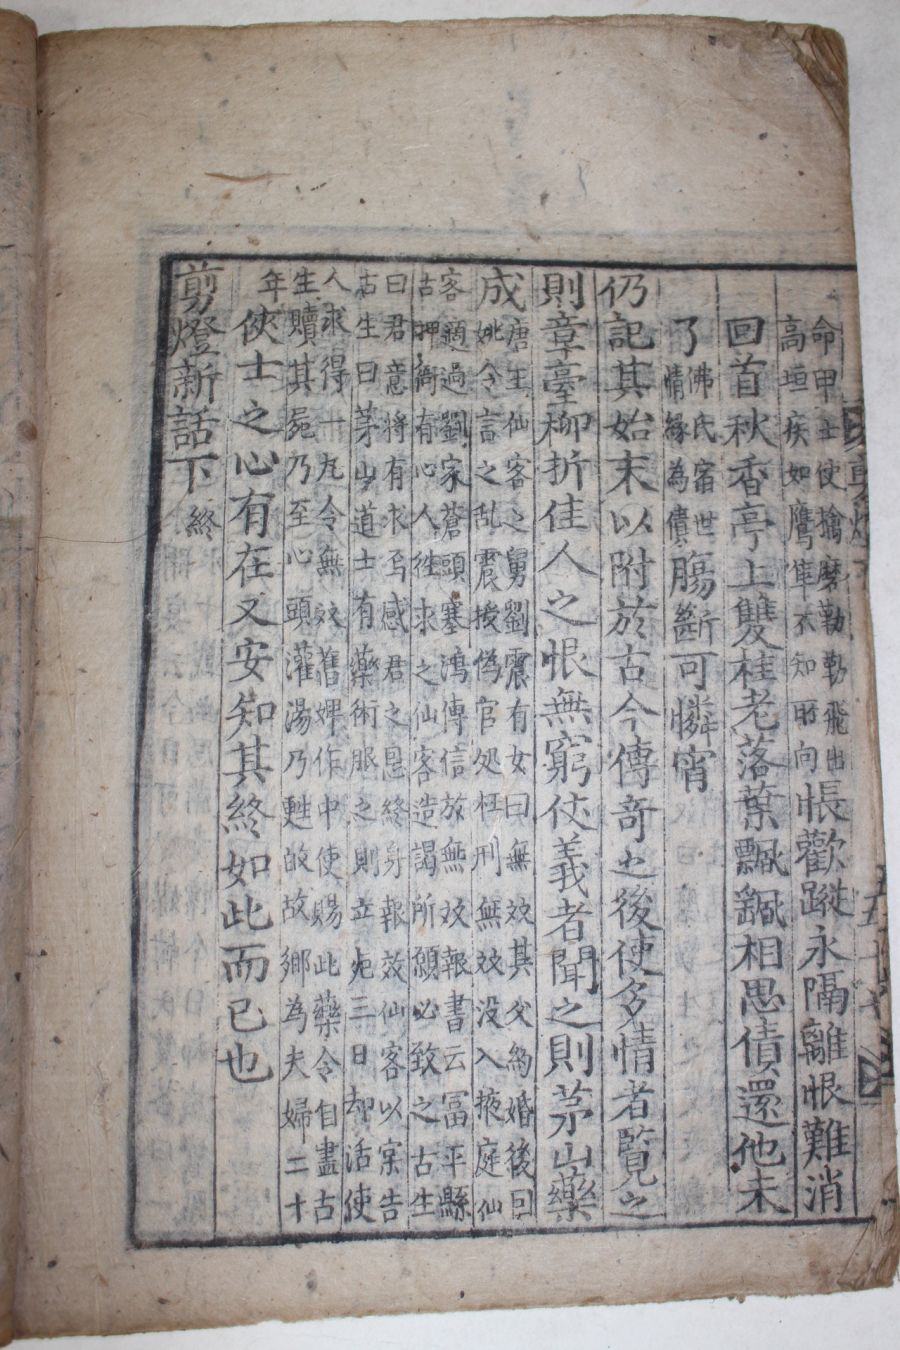 命甲士使擒磨勒勒飛出
高垣疾如鷹隼不知所向悵歡蹤永隔離恨難消
回首秋香亭上雙桂老落葉飄飄相思債還他未
了佛氏宿世
情緣為債腸斷可憐宵
仍記其始末以附於古今傳奇之後使多情者覽之
則章臺柳折佳人之恨無窮仗義者聞之則茅山藥
成唐王仙客之舅劉震有女曰無双其父約婚後因
姚令言之乱震授偽官処極刑無双没入掖庭仙
客適過劉家蒼頭塞鴻傳信於無双報書云冨平縣
古押衙有心人徃求之仙客造謁所願必致之古生
曰君意將有求焉感君之恩終身報效仙客以宲告
古生曰茅山道士有藥術服之則立死三日却活使
人求得一丸令無双舊婢作中使賜此藥令自盡古
生贖其屍乃至心頭灌湯乃甦故故鄉為夫婦二十
年俠士之心有在又安知其終如此而已也
剪燈新話下終